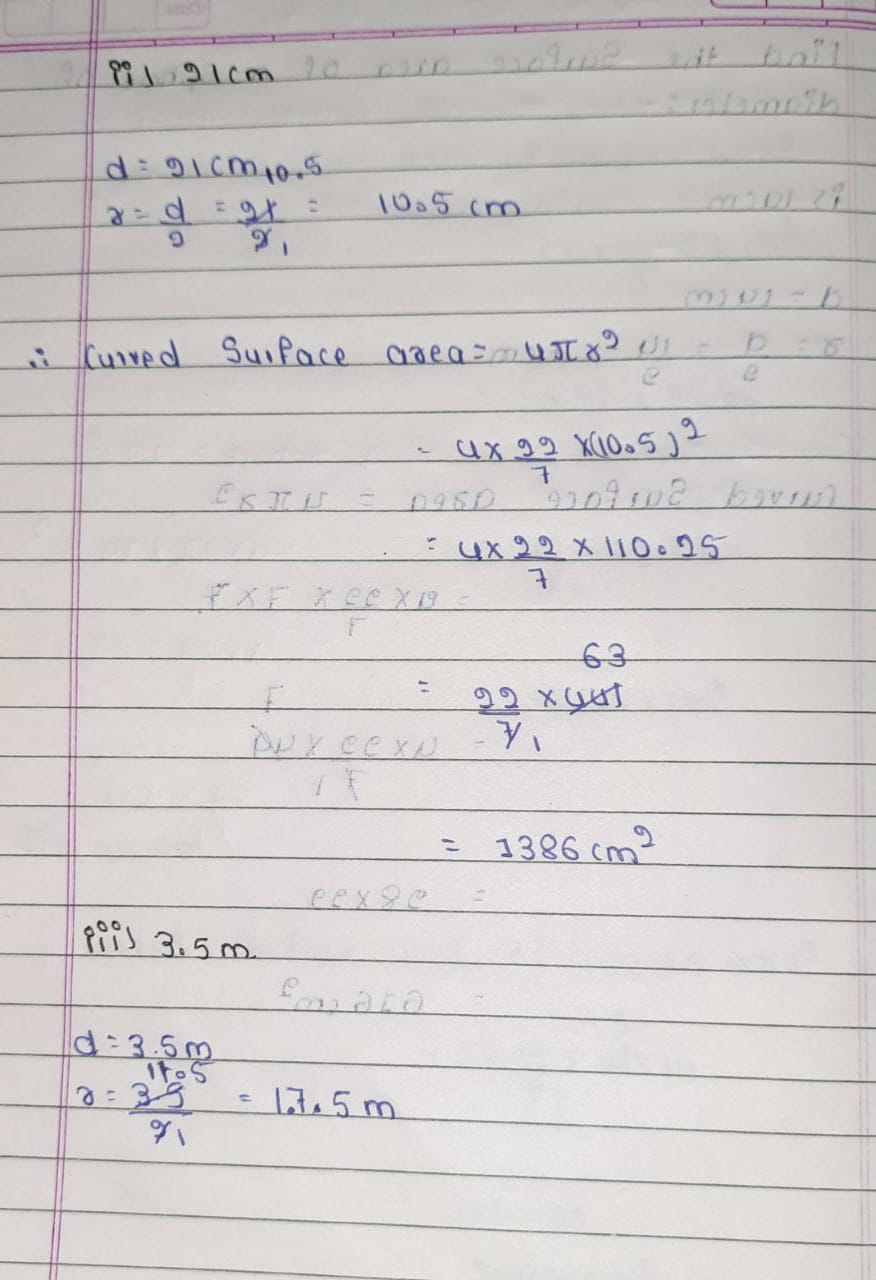 ii) 21cm
d = 21cm 10.5
r = d/2 = 21/2 1 = 10.5 cm
∴ Curved Surface area = 4πr²
= 4 x 22/7 x(10.5)²
= 4x 22/7 x 110.25
63
= 22/7 1 x 441
= 1386 cm²
iii) 3.5m
d = 3.5m
17.5
r = 35/2 1 = 1.7.5 m